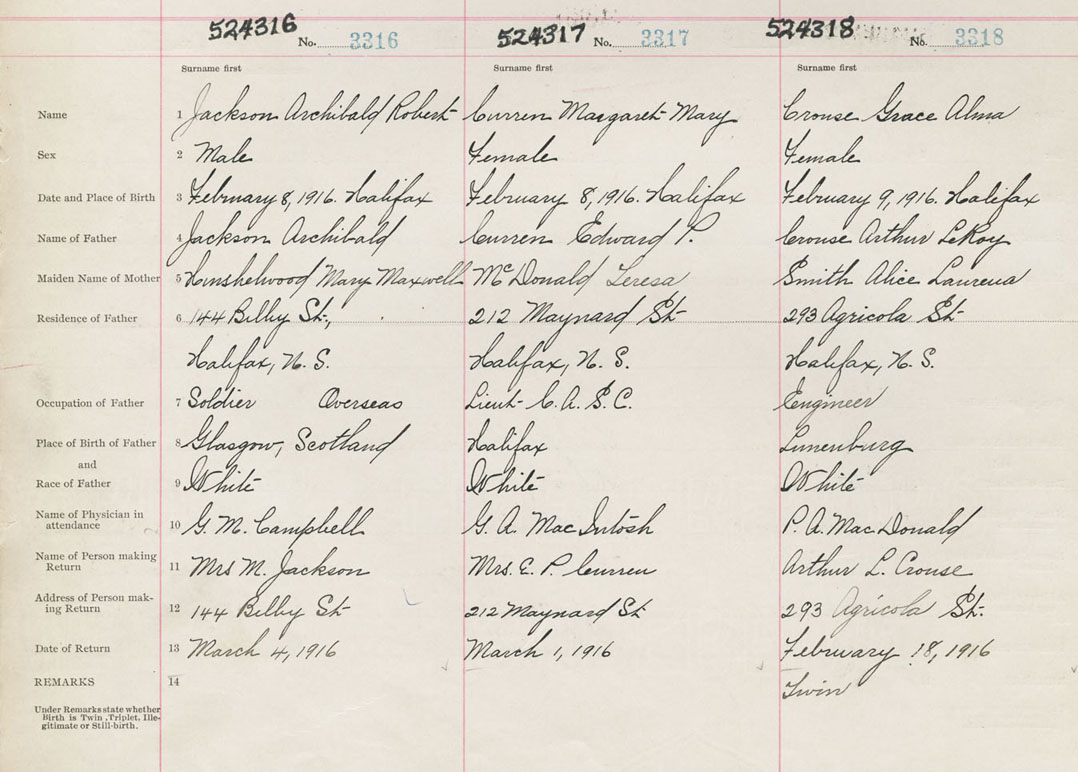 524316 No. 3316 524317 No. 3317 524318 No. 3318
Surname first Surname first Surname first
Name 1 Jackson Archibald Robert Curren Margaret Mary Crouse Grace Alma
Sex 2 Male Female Female
Date and Place of Birth 3 February 8, 1916. Halifax February 8, 1916. Halifax February 9, 1916. Halifax
Name of Father 4 Jackson Archibald Curren Edward P. Crouse Arthur LeRoy
Maiden Name of Mother 5 Hinshelwood Mary Maxwell McDonald Teresa Smith Alice Laurena
Residence of Father 6 144 Bilby St., 212 Maynard St 293 Agricola St
Halifax, N. S. Halifax, N. S. Halifax, N. S.
Occupation of Father 7 Soldier Overseas Lieut C. A. S. C. Engineer
Place of Birth of Father 8 Glasgow, Scotland Halifax Lunenburg
and
Race of Father 9 White White White
Name of Physician in
attendance 10 G. M. Campbell G. A. MacIntosh P. A. MacDonald
Name of Person making
Return 11 Mrs M. Jackson Mrs. E. P. Curren Arthur L. Crouse
Address of Person mak-
ing Return 12 144 Bilby St 212 Maynard St 293 Agricola St.
Date of Return 13 March 4, 1916 March 1, 1916 February 18, 1916
REMARKS 14 Twin
Under Remarks state whether
Birth is Twin, Triplet, Ille-
gitimate or Still-birth.